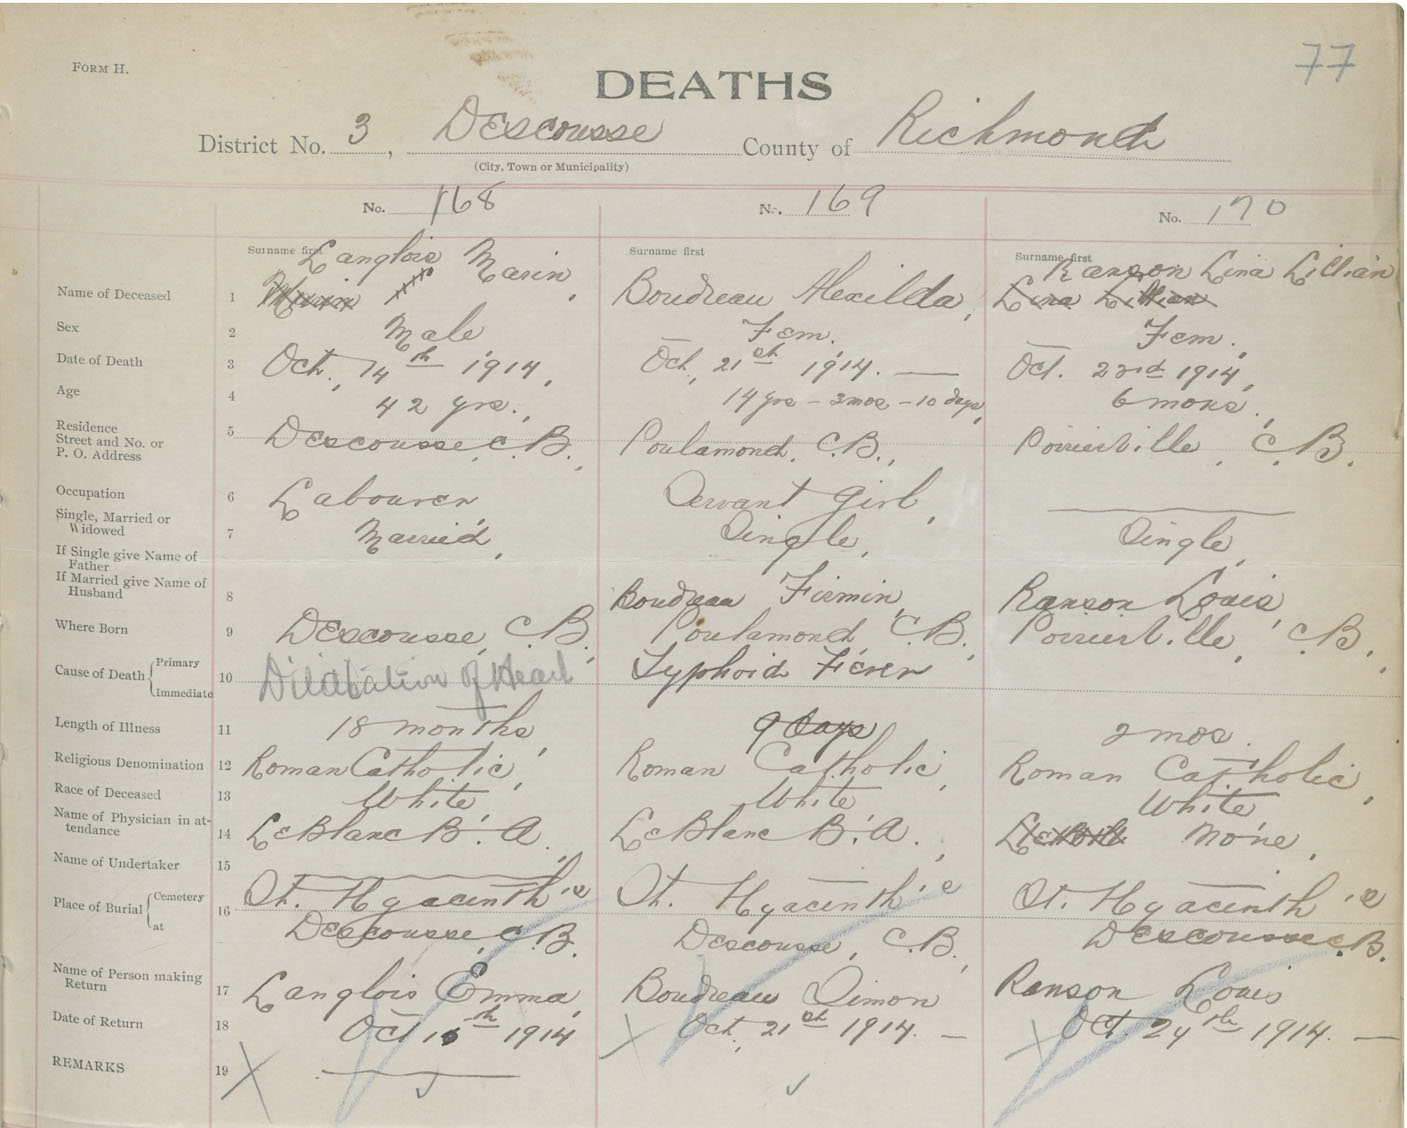 77
FORM H.
DEATHS
District No. 3, Descousse County of Richmond
(City, Town or Municipality)
No. 168 No. 169 No. 170
Surname first Surname first Surname first
Langlois Marin Ranson Lina Lillian
Name of Deceased 1 Marin , Boudreau Alexilda, Lina Lillian
Sex 2 Male Fem. Fem.,
Date of Death 3 Oct. 14th 1914, Oct, 21st 1914. — Oct. 23rd 1914,
Age 4 42 yrs., 14 yrs - 3mos - 10 days, 6 mons.,
Residence
Street and No. or
P. O. Address 5 Descousse, C.B., Poulamond, C.B., Poirierville, C.B.
Occupation 6 Labourer Servant girl, —
Single, Married or
Widowed 7 Married, Single, Single,
If Single give Name of
Father
If Married give Name of
Husband 8 Boudreau Firmin, Ranson Louis,
Where Born 9 Descousse, C.B., Poulamond C.B., Poirierville, C.B.,
Cause of Death { Primary
Immediate 10 Dilatation of Heart Typhoid Fever
Length of Illness 11 18 months, 9 days 2 mos.
Religious Denomination 12 Roman Catholic, Roman Catholic, Roman Catholic,
Race of Deceased 13 White White White
Name of Physician in at-
tendance 14 LeBlanc B. A., LeBlanc B. A., None,
Name of Undertaker 15
Place of Burial { Cemetery
at 16 St. Hyacinth's St. Hyacinth's St. Hyacinth's
Descousse, C.B. Descousse, C.B., Descousse C.B.
Name of Person making
Return 17 Langlois Emma, Boudreau Simon Ranson Louis
Date of Return 18 Oct 15th 1914 Oct, 21st 1914. — Oct. 24th 1914. —
REMARKS 19